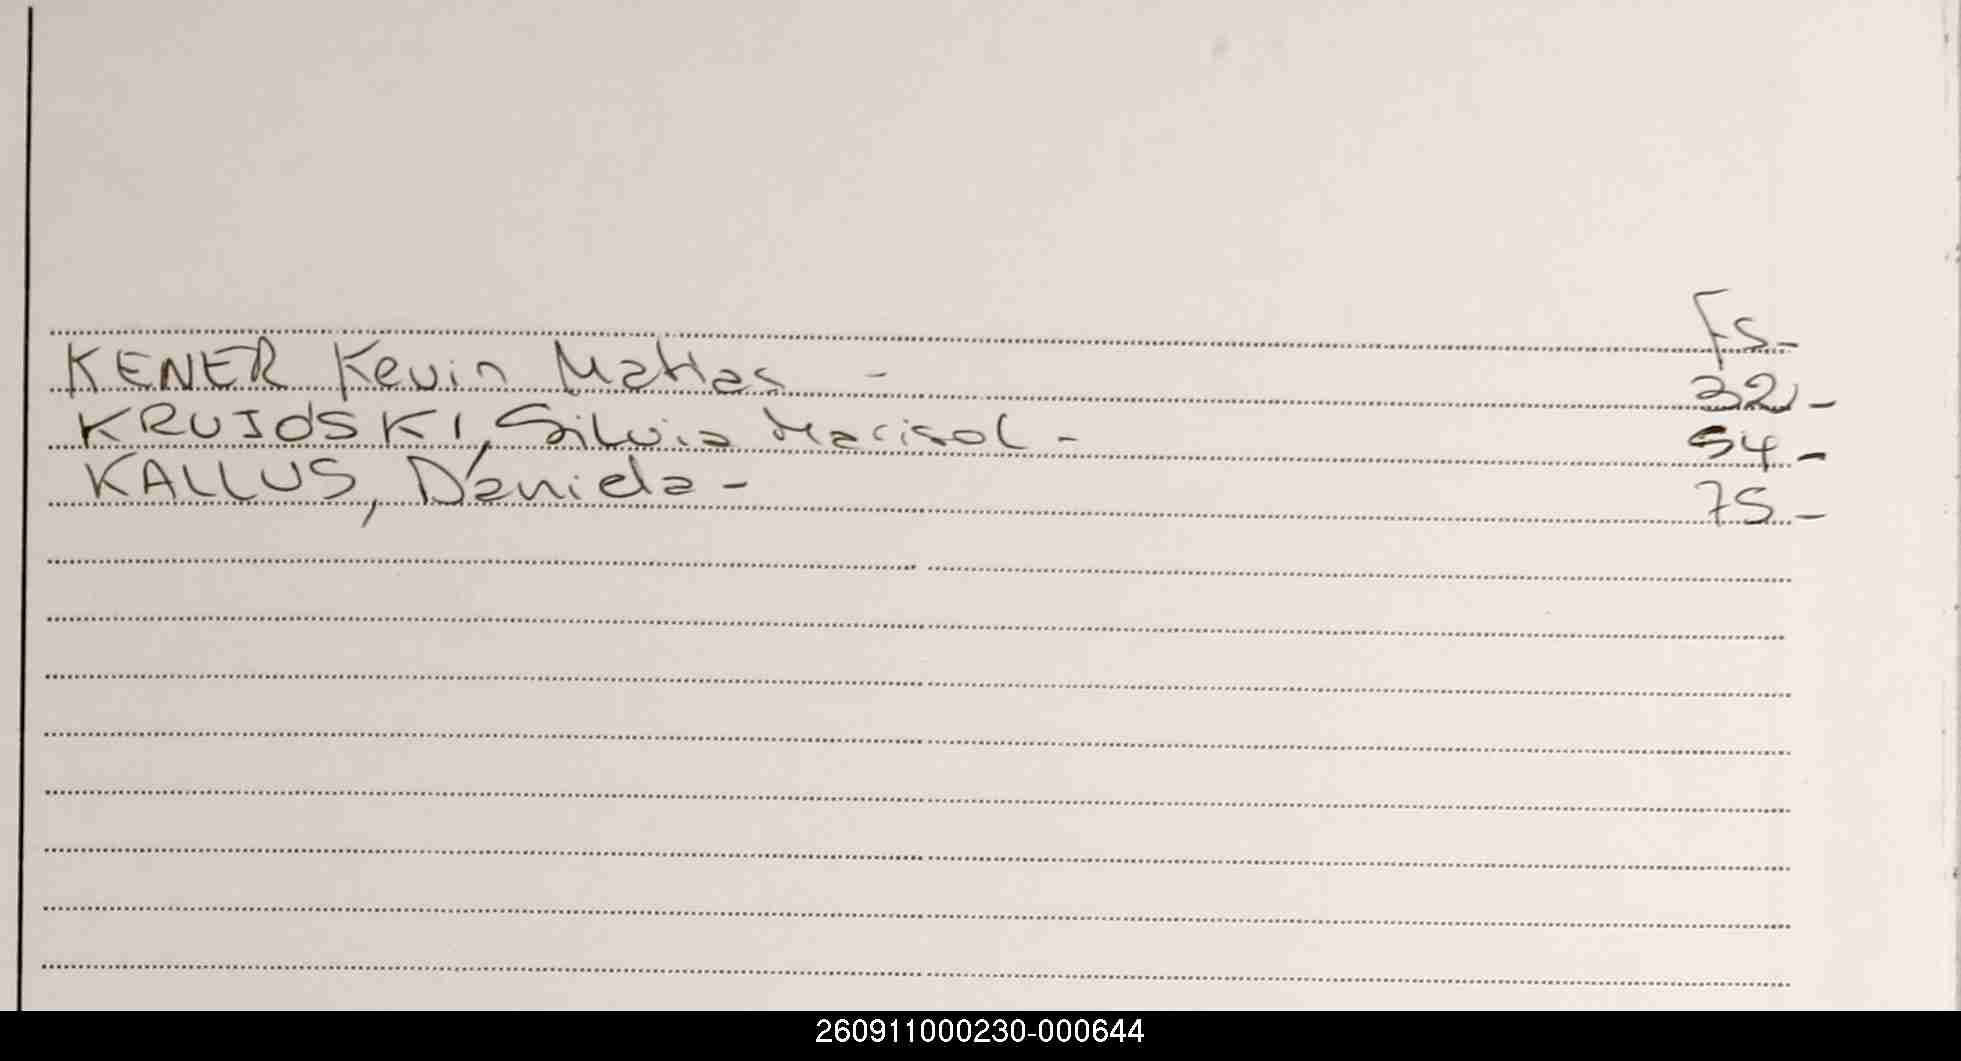 Fs-
KENER Kevin Matias - 32-
KRUJOSKI, Silvia Marisol - 54-
KALLUS, Daniela - 75-
260911000230-000644